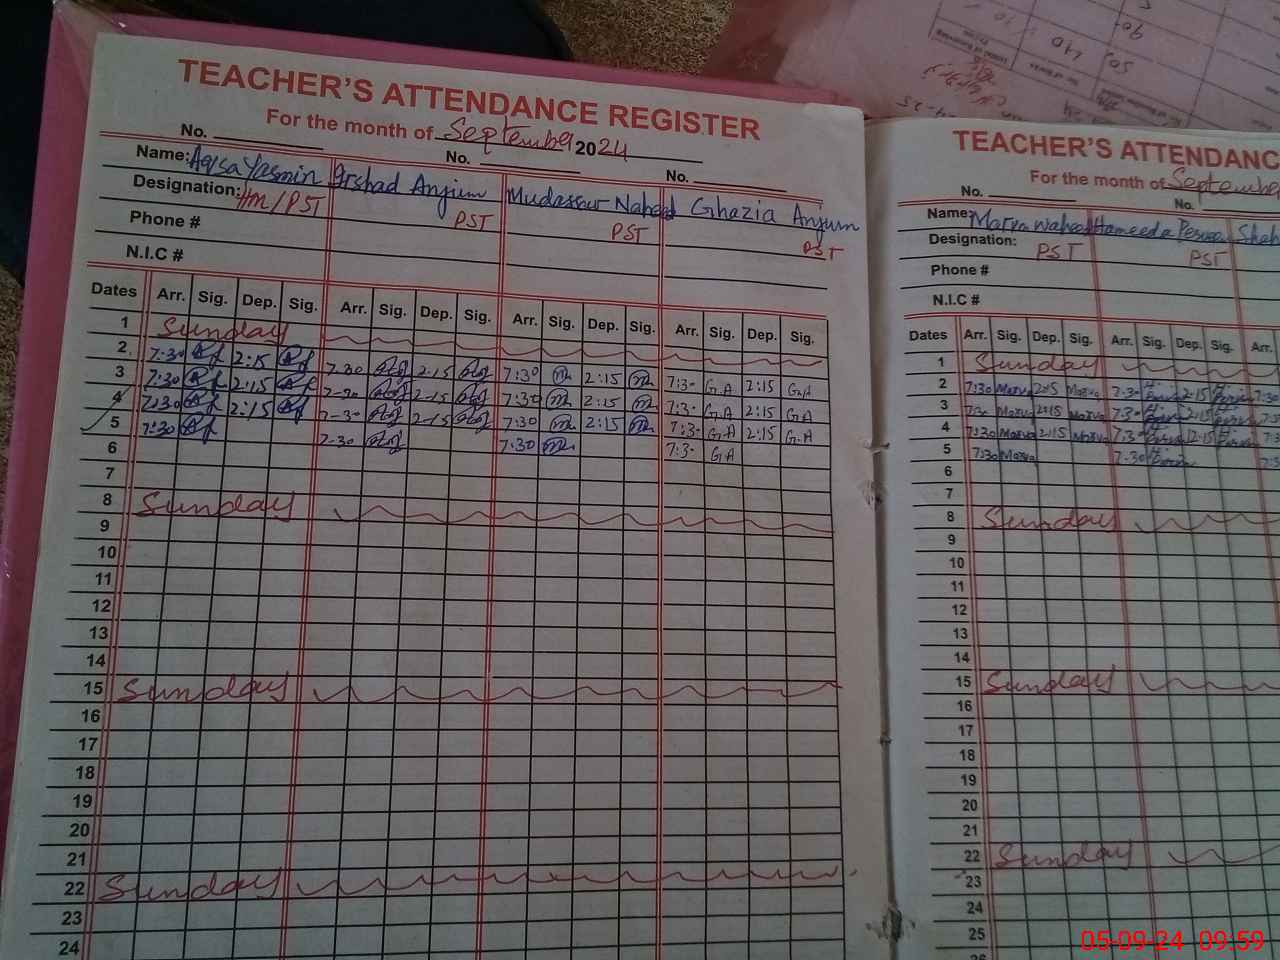 TEACHER'S ATTENDANCE REGISTER
For the month of September 2024
No. No. No.
Name: Aqsa Yasmin Arshad Anjum Mudassar Naheed Ghazia Anjum
Designation: HM/PST PST PST PST
Phone #
N.I.C #
Dates Arr. Sig. Dep. Sig. Arr. Sig. Dep. Sig. Arr. Sig. Dep. Sig. Arr. Sig. Dep. Sig.
1 Sunday
2 7:30 2:15 7-30 2-15 7:30 m 2:15 m 7:3- G.A 2:15 G.A
3 7:30 2:15 7-30 2-15 7:30 m 2:15 m 7:3- G.A 2:15 G.A
4 7:30 2:15 7-30 2-15 7:30 m 2:15 m 7:3- G.A 2:15 G.A
5 7:30 7-30 7:30 m 7:3- G.A
6
7
8 Sunday
9
10
11
12
13
14
15 Sunday
16
17
18
19
20
21
22 Sunday
23
24
TEACHER'S ATTENDANC
For the month of September
No. No.
Name: Marva Waheed Hameeda Perveen Shah
Designation: PST PST
Phone #
N.I.C #
Dates Arr. Sig. Dep. Sig. Arr. Sig. Dep. Sig. Arr.
1 Sunday
2 7:30 Marva 2:15 Marva 7-30 2-15 7:30
3 7:30 Marva 2:15 Marva 7-30 2:15
4 7:30 Marva 2:15 Marva 7:30 2:15
5 7:30 Marva 7-30
6
7
8 Sunday
9
10
11
12
13
14
15 Sunday
16
17
18
19
20
21
22 Sunday
23
24
25
05-09-24 09:59